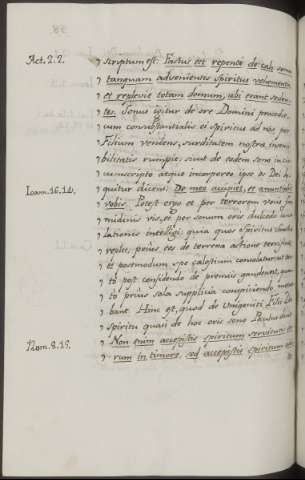 Act. 2. 2. scriptum est. Factus est repente de cælo sonus
tanquam advenientis spiritus vehementis
et replevit totam domum, ubi erant seden-
tes. Sonus igitur de ore Domini procedit,
cum consubstantialis ei Spiritus ad nos per
Filium veniens, surditatem nostræ insensi-
bilitatis rumpit; sicut de eodem sono incir-
cumscripto atque incorporeo ipse os Dei lo-
Ioan. 16, 14. quitur dicens: De meo accipiet, et annuntiabit
vobis. Potest ergo et per terrorem vocis for-
midinis vis, et per sonum oris dulcedo conso-
lationis intelligi: quia quos Spiritus Sanctus
replet, prius eos de terrena actione terrificat,
et postmodum spe cælestium consolatur:
to post considendo de præmiis gaudeant, quan-
to prius sola supplicia conspiciendo metue-
bant. Hinc est, quod de Unigeniti Filii
spiritu quasi de hoc oris sono Paulus
Rom. 8. 15. Non enim accepistis spiritum servitutis
rum in timore, sed accepistis spiritum